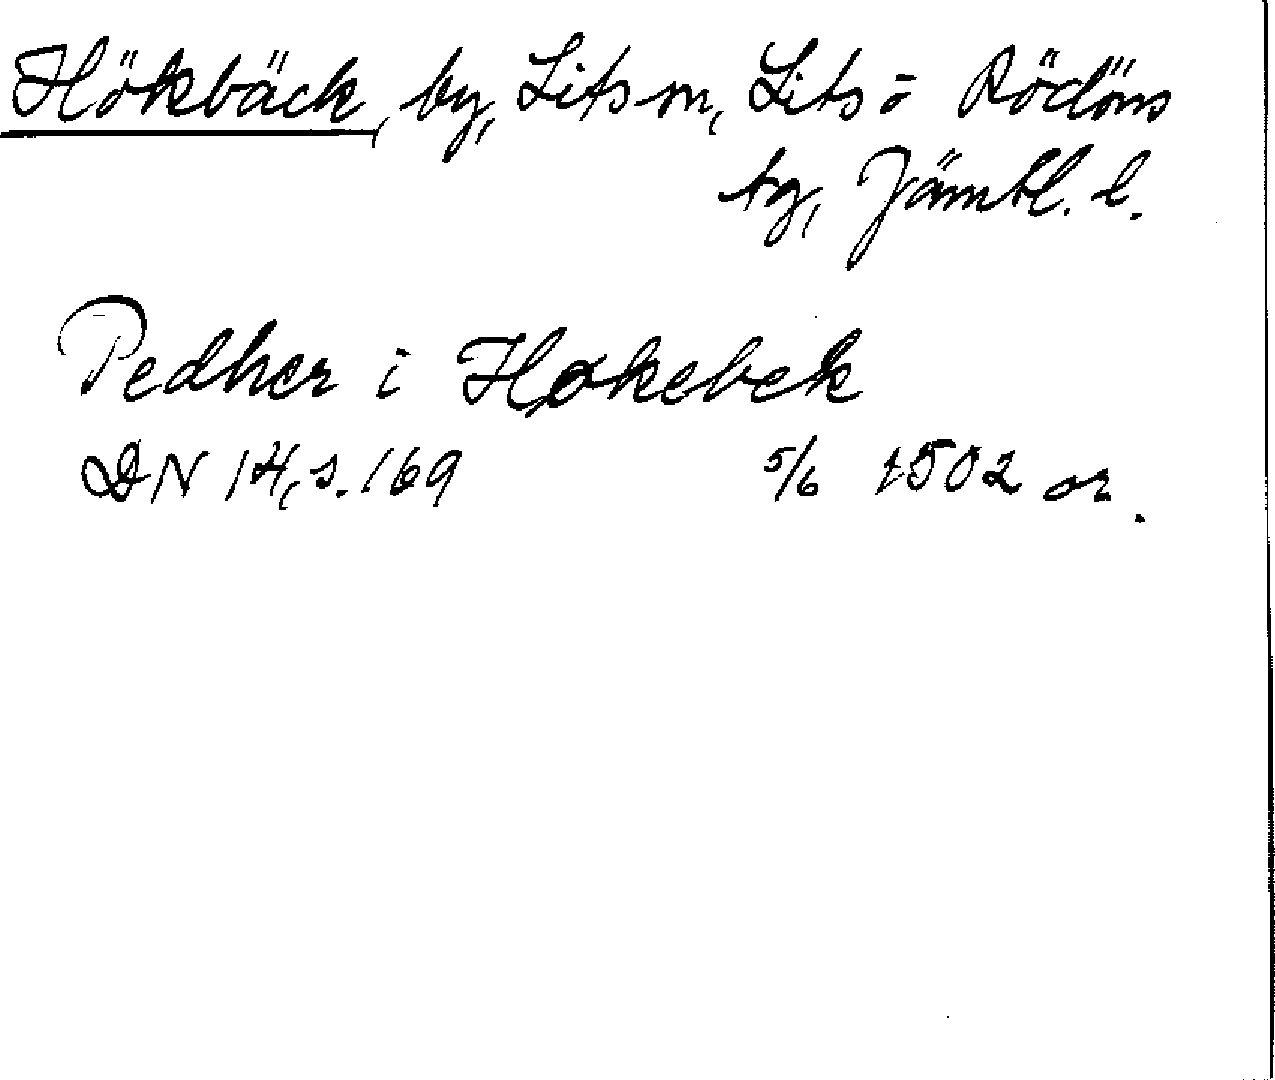 Hökbäck, by, Lits sn, Lits o Rödöns
tg, Jämtl. l.
Pedher i Høkebek
DN 14, s. 169 5/6 1502 or.